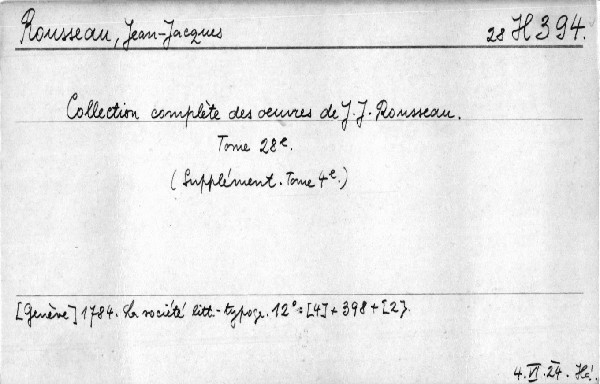 Rousseau, Jean-Jacques 28 H 394.
Collection complète des oeuvres de J. J. Rousseau.
Tome 28e.
(Supplément. Tome 4e.)
[Genève] 1784. La société litt.-typogr. 12°: [4] + 398 + [2].
4.VI.24. Hé.